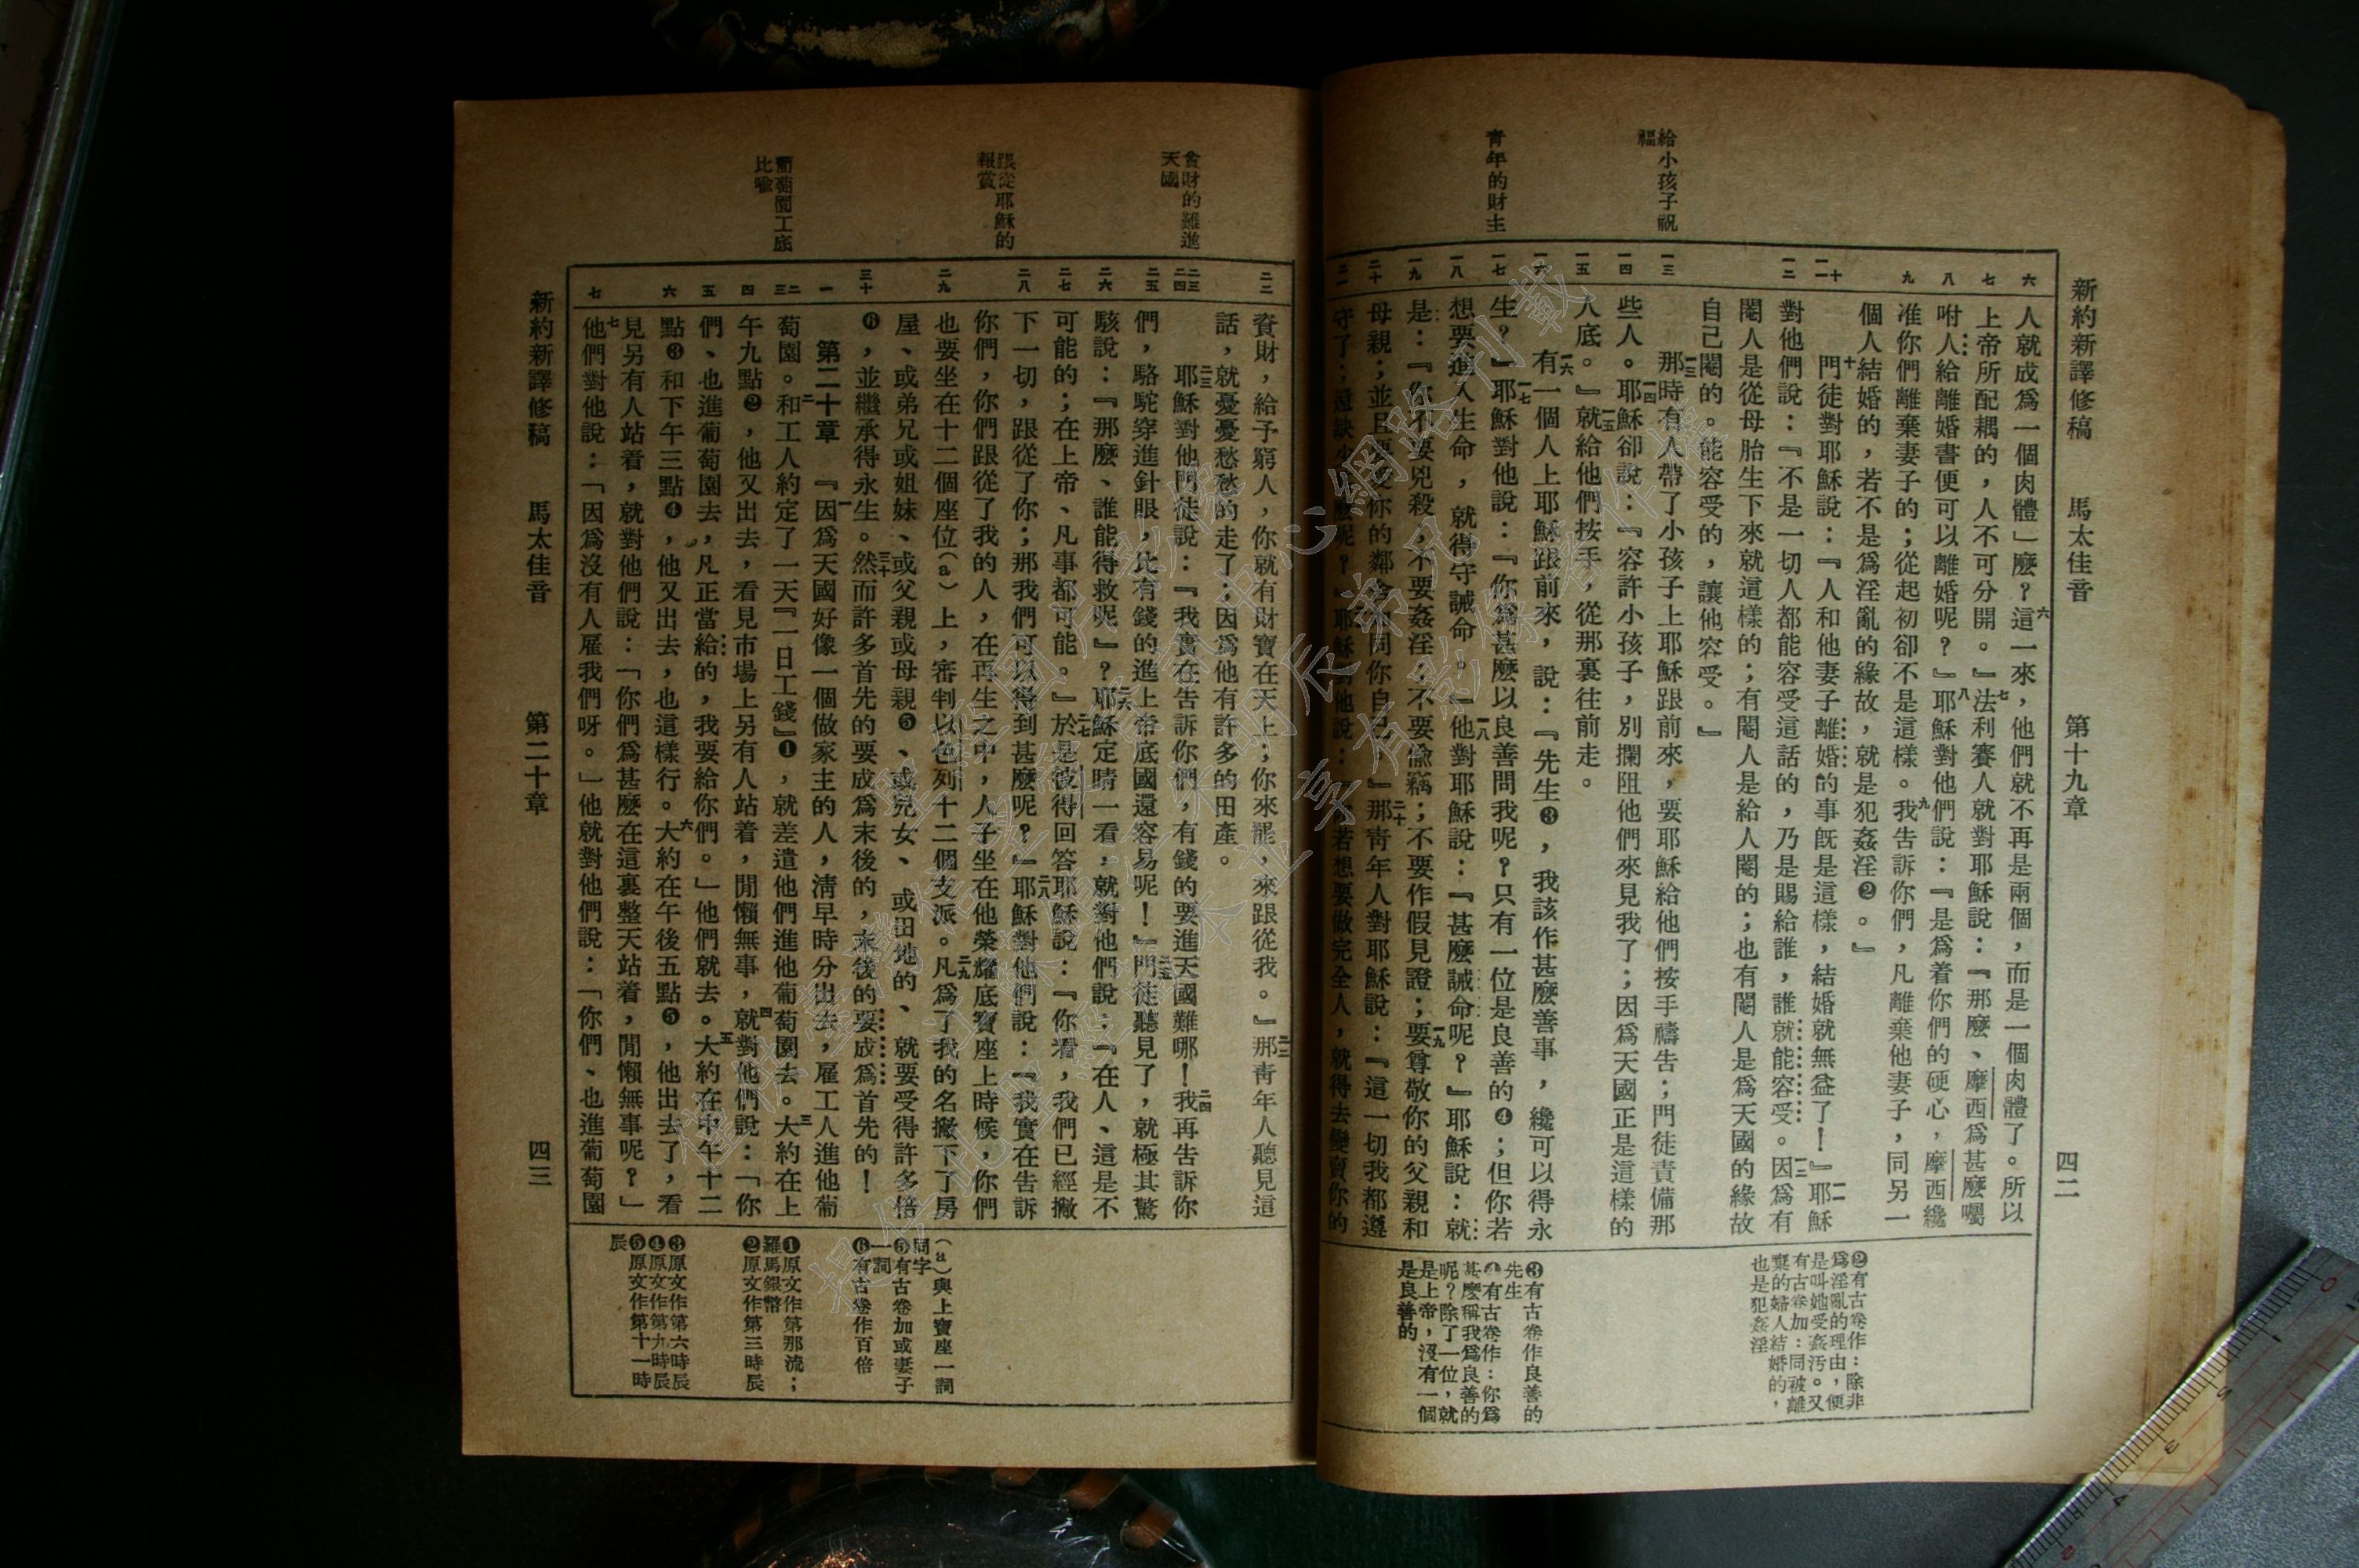 新約新譯修稿　馬太佳音　第十九章　四二
給小孩子祝
福
青年的財主
六 七 八 九 十 一一 一二 一三 一四 一五 一六 一七 一八 一九 二十 二一
人就成爲一個肉體」麼?六這一來,他們就不再是兩個,而是一個肉體了。所以
上帝所配耦的,人不可分開。』七法利賽人就對耶穌說:『那麼、摩西爲甚麼囑
咐人給離婚書便可以離婚呢?』八耶穌對他們說:『是爲着你們的硬心,摩西纔
准你們離棄妻子的;從起初卻不是這樣。九我告訴你們,凡離棄他妻子,同另一
個人結婚的,若不是爲淫亂的緣故,就是犯姦淫❷。』
十門徒對耶穌說:『人和他妻子離婚的事旣是這樣,結婚就無益了!』一一耶穌
對他們說:『不是一切人都能容受這話的,乃是賜給誰,誰就能容受。一二因爲有
閹人是從母胎生下來就這樣的;有閹人是給人閹的;也有閹人是爲天國的緣故
自己閹的。能容受的,讓他容受。』
一三那時有人帶了小孩子上耶穌跟前來,要耶穌給他們按手禱告;門徒責備那
些人。一四耶穌卻說:『容許小孩子,別攔阻他們來見我了;因爲天國正是這樣的
人底。』一五就給他們按手,從那裏往前走。
一六有一個人上耶穌跟前來,說:『先生❸,我該作甚麼善事,纔可以得永
生?』一七耶穌對他說:『你爲甚麼以良善問我呢?只有一位是良善的❹;但你若
想要進入生命,就得守誡命。』一八他對耶穌說:『甚麼誡命呢?』耶穌說:就
是:『你不要兇殺,不要姦淫,不要偸竊;不要作假見證;一九要尊敬你的父親和
母親;並且要愛你的鄰舍同你自己。』二十那靑年人對耶穌說:『這一切我都遵
守了;還缺少甚麼呢?』耶穌對他說:『你若想要做完全人,就得去變賣你的
❷有古卷作:除非
爲淫亂的理由,便
是叫她受姦汚。又
有古卷加:同被離
棄的婦人結婚的,
也是犯姦淫
❸有古卷作良善的
先生
❹有古卷作:你爲
甚麼稱我爲良善的
呢?除了一位,就
是上帝,沒有一個
是良善的
貪財的難進
天國
跟從耶穌的
報賞
葡萄園工底
比喩
二二 二三 二四 二五 二六 二七 二八 二九 三十 一 二 三 四 五 六 七
資財,給予窮人,你就有財寶在天上;你來罷,來跟從我。』二二那靑年人聽見這
話,就憂憂愁愁的走了;因爲他有許多的田產。
二三耶穌對他門徒說:『我實在告訴你們,有錢的要進天國難哪!二四我再告訴你
們,駱駝穿進針眼,比有錢的進上帝底國還容易呢!』二五門徒聽見了,就極其驚
駭說:『那麼、誰能得救呢』?二六耶穌定睛一看,就對他們說:『在人、這是不
可能的;在上帝、凡事都可能。』二七於是彼得回答耶穌說:『你看,我們已經撇
下一切,跟從了你;那我們可以得到甚麼呢?』二八耶穌對他們說:『我實在告訴
你們,你們跟從了我的人,在再生之中,人子坐在他榮耀底寶座上時候,你們
也要坐在十二個座位(a)上,審判以色列十二個支派。二九凡爲了我的名撇下了房
屋、或弟兄或姐妹、或父親或母親❺、或兒女、或田地的、就要受得許多倍
❻,並繼承得永生。三十然而許多首先的要成爲末後的,末後的要成爲首先的!
第二十章　一『因爲天國好像一個做家主的人,淸早時分出去,雇工人進他葡
萄園。二和工人約定了一天『一日工錢』❶,就差遣他們進他葡萄園去。三大約在上
午九點❷,他又出去,看見市場上另有人站着,閒懶無事,四就對他們說:「你
們、也進葡萄園去,凡正當給的,我要給你們。」他們就去。五大約在中午十二
點❸和下午三點❹,他又出去,也這樣行。六大約在午後五點❺,他出去了,看
見另有人站着,就對他們說:「你們爲甚麼在這裏整天站着,閒懶無事呢?」
七他們對他說:「因爲沒有人雇我們呀。」他就對他們說:「你們、也進葡萄園
(a)與上寶座一詞
同字
❺有古卷加或妻子
一詞
❻有古卷作百倍
❶原文作第那流;
羅馬銀幣
❷原文作第三時辰
❸原文作第六時辰
❹原文作第九時辰
❺原文作第十一時
辰
新約新譯修稿　馬太佳音　第二十章　四三